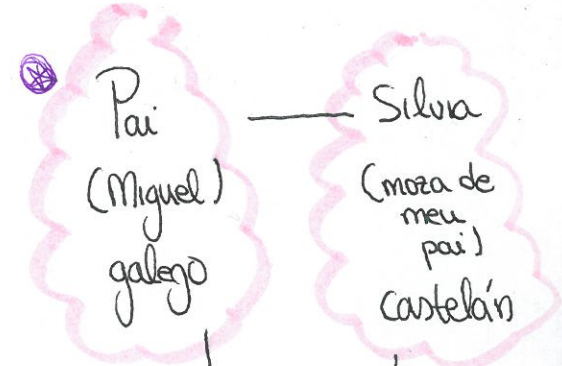 Pai
(Miguel)
galego
Silvia
(moza de
meu
pai)
castelán